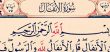 سُورَةُ الأَنْفَالِ
بِسْمِ اللَّهِ الرَّحْمَٰنِ الرَّحِيمِ
الْأَنفَالِ قُلِ الْأَنفَالُ لِلَّهِ وَالرَّسُولِ